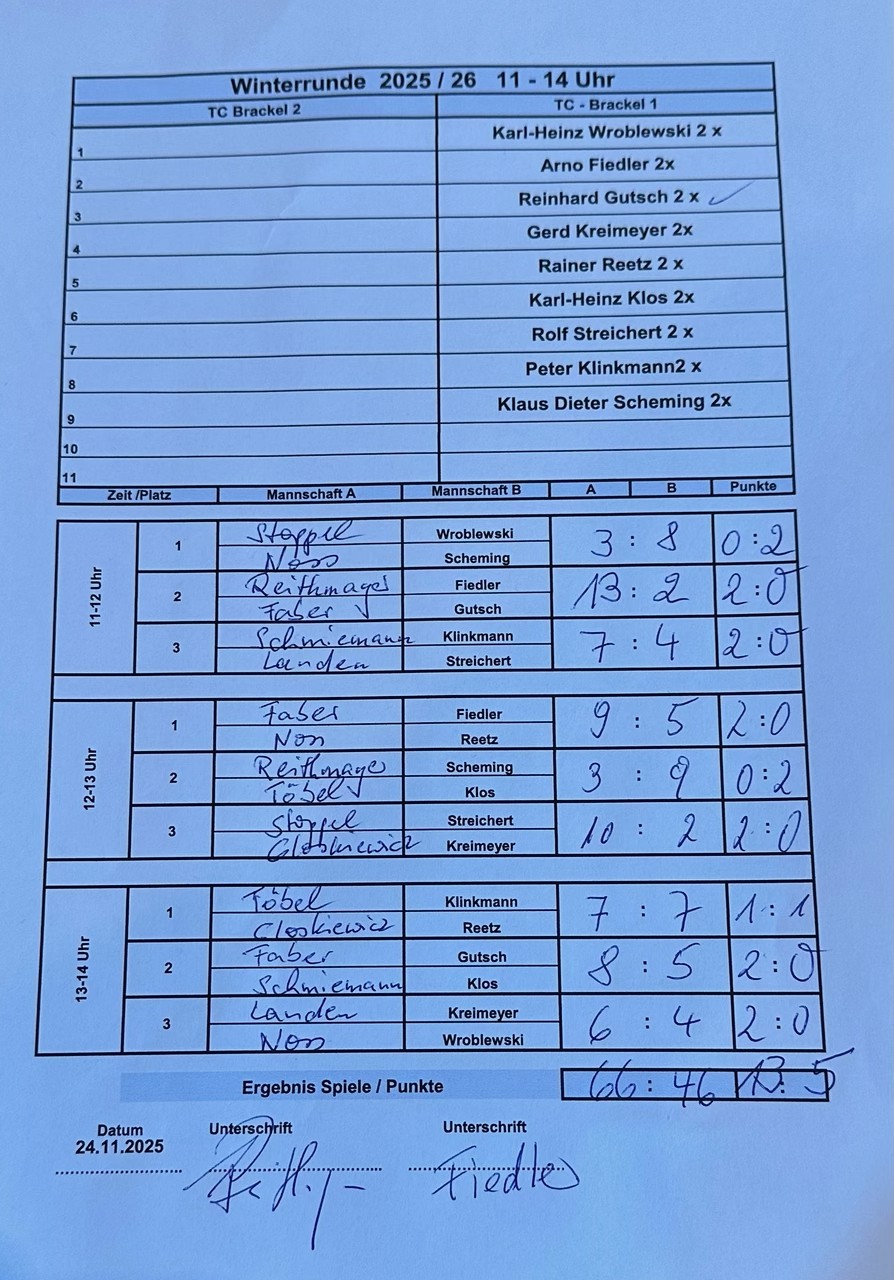 Winterrunde 2025 / 26 11 - 14 Uhr
TC Brackel 2 TC - Brackel 1
1 Karl-Heinz Wroblewski 2 x
2 Arno Fiedler 2x
3 Reinhard Gutsch 2 x
4 Gerd Kreimeyer 2x
5 Rainer Reetz 2 x
6 Karl-Heinz Klos 2x
7 Rolf Streichert 2 x
8 Peter Klinkmann2 x
9 Klaus Dieter Scheming 2x
10
11
Zeit /Platz Mannschaft A Mannschaft B A B Punkte
11-12 Uhr
1 Stoppel Wroblewski 3 : 8 0:2
Noss Scheming
2 Reithmayer Fiedler 13 : 2 2:0
Faber Gutsch
3 Schmiemann Klinkmann 7 : 4 2:0
Landen Streichert
12-13 Uhr
1 Faber Fiedler 9 : 5 2:0
Noss Reetz
2 Reithmayer Scheming 3 : 9 0:2
Töbel Klos
3 Stoppel Streichert 10 : 2 2:0
Closkiewicz Kreimeyer
13-14 Uhr
1 Töbel Klinkmann 7 : 7 1:1
Closkiewicz Reetz
2 Faber Gutsch 8 : 5 2:0
Schmiemann Klos
3 Landen Kreimeyer 6 : 4 2:0
Noss Wroblewski
Ergebnis Spiele / Punkte 66 : 46 13 : 5
Datum Unterschrift Unterschrift
24.11.2025 Fiedler